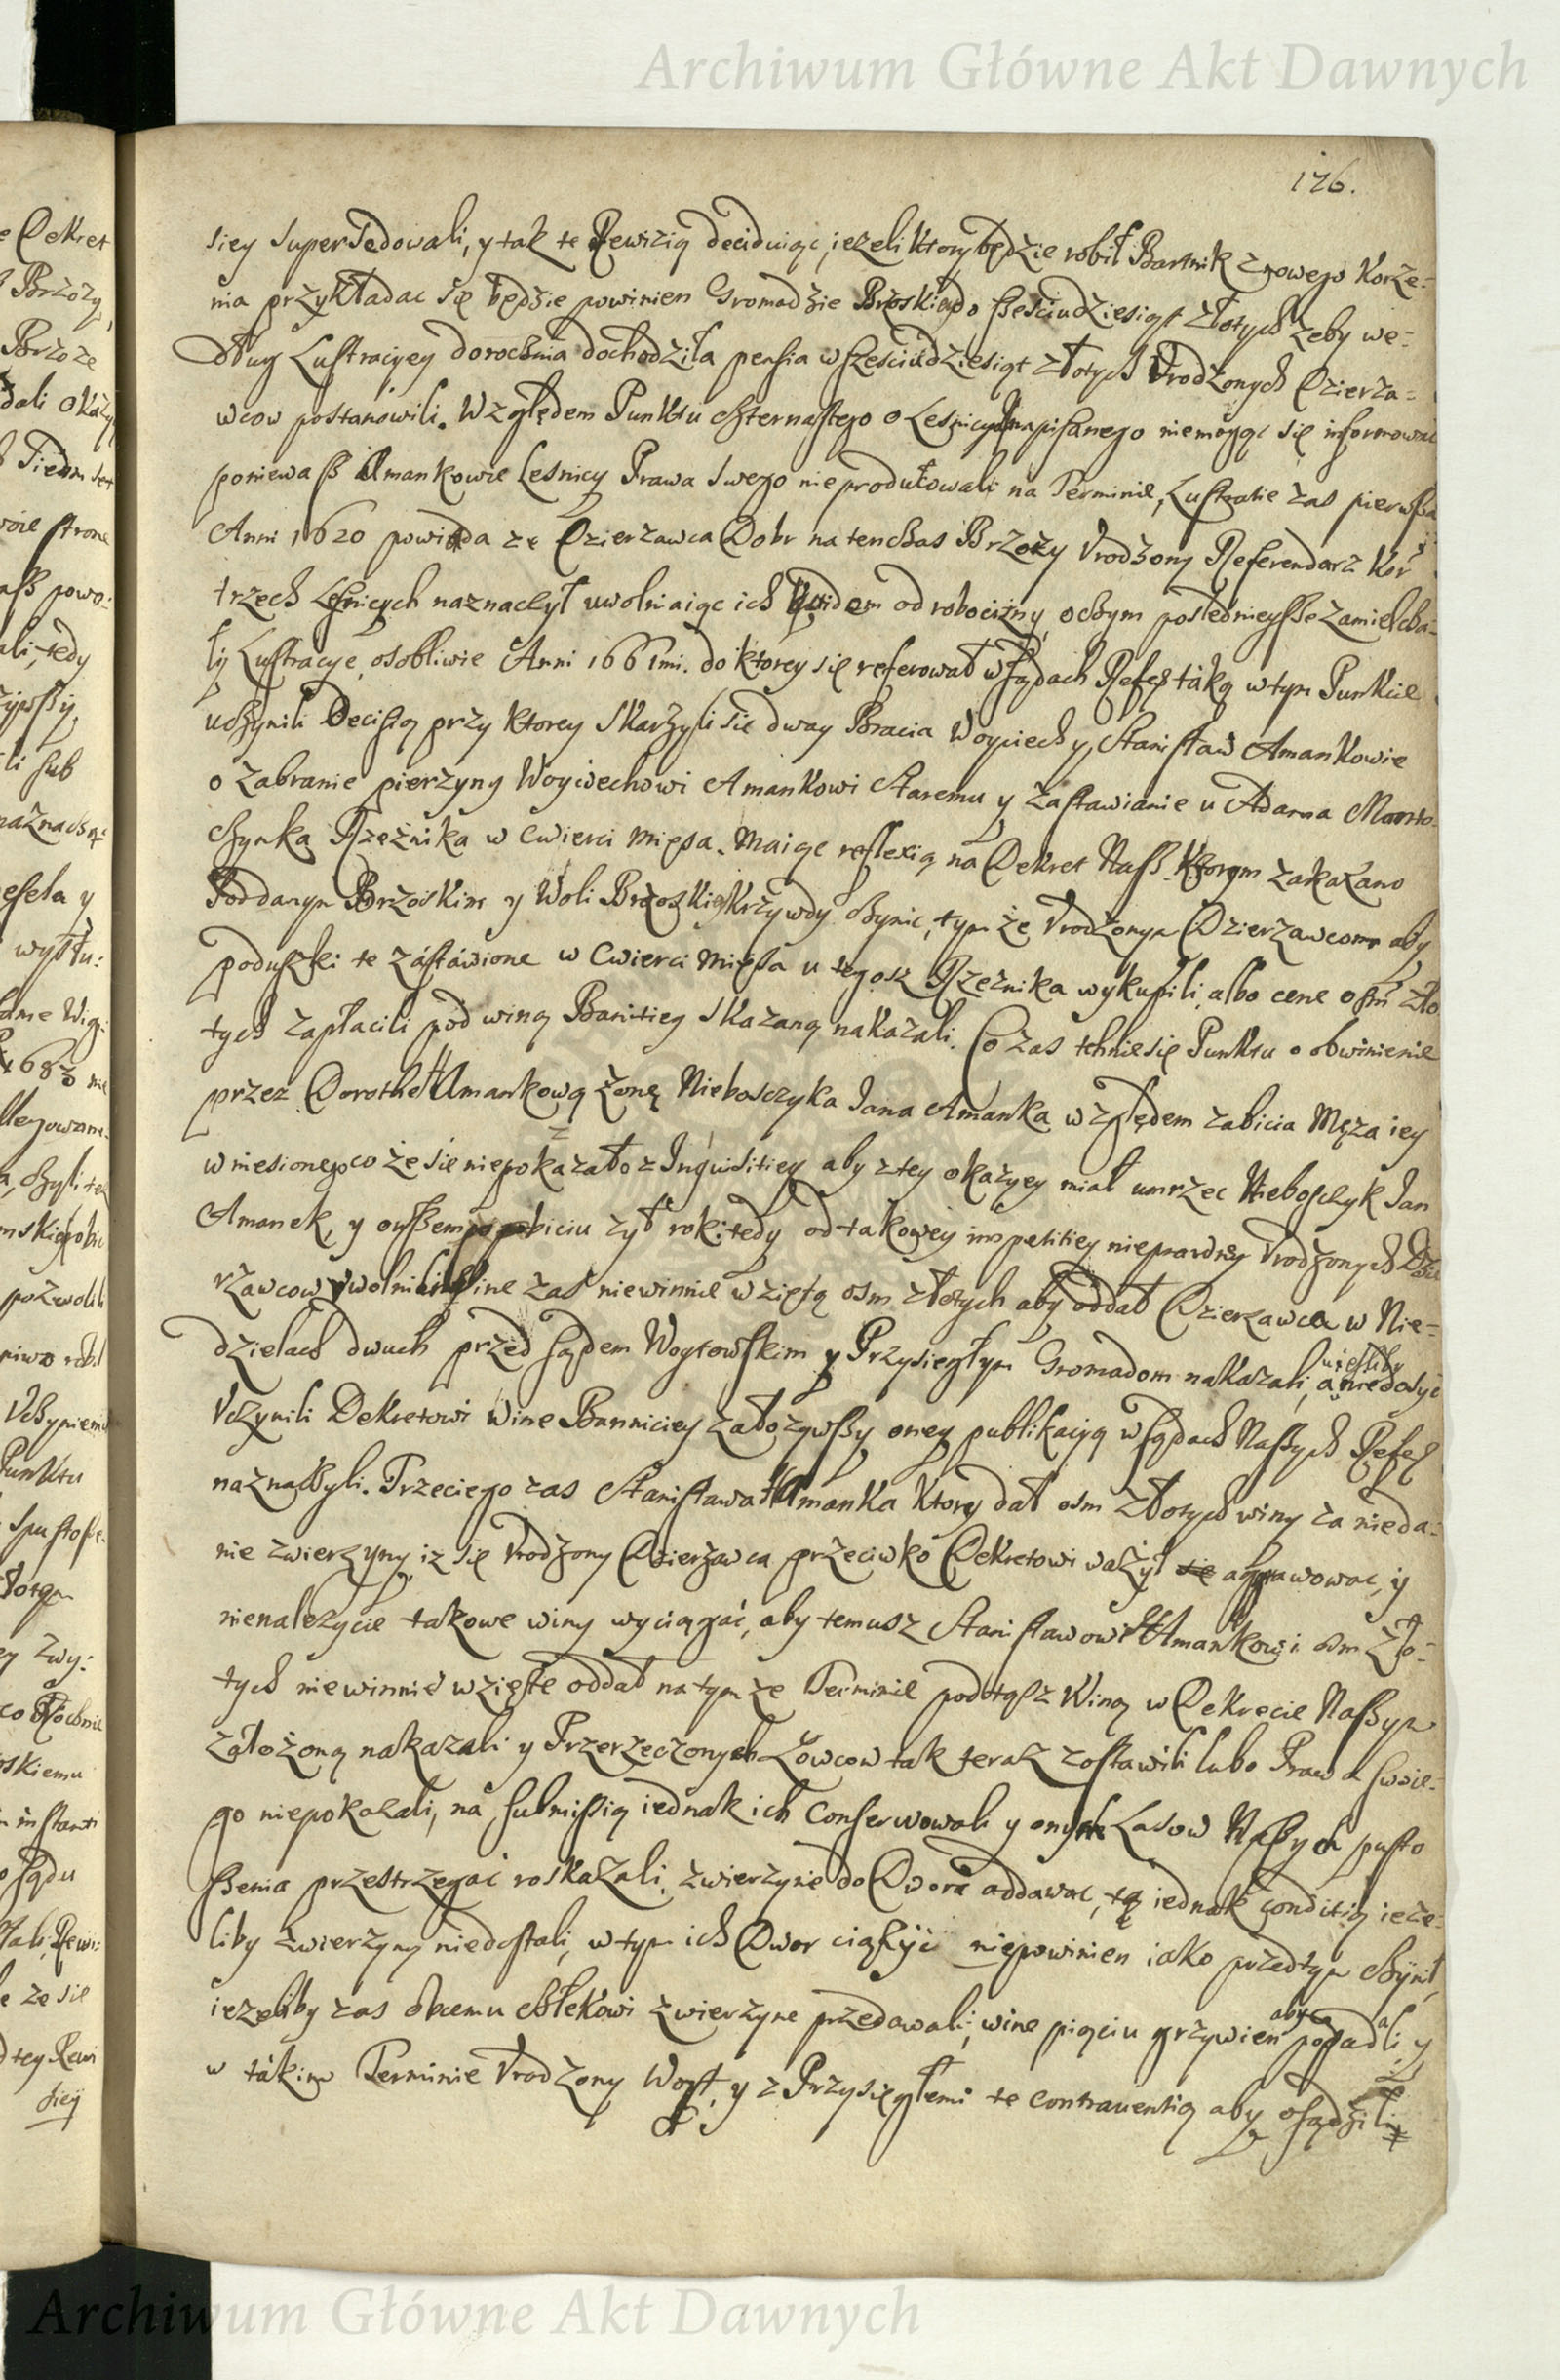 Archiwum Główne Akt Dawnych
126.
siey supersedowali, y tak te Rewizią deciduiąc, iezeli ktory będzie robił Bartnik z nowego Korze-
nia przykładac się będzie powinien Gromadzie Brzoskiey do sześciudziesiąt złotych zeby we-
dług Lustracyey dorochnia dochodziła pensia w sześciudziesiąt złotych Urodzonych Dzierza-
wcow postanowili. Względem Punktu czternastego o Lesniczych napisanego niemogąc się informowac
poniewasz Amankowie Lesnicy Prawa swego nie produkowali na Terminie, Lustratie zas pierwsza
Anni 1620 powiada ze Dzierzawca Dobr na tenczas Brzozy Urodzony Referendarz Kor
trzech Lesnicych naznaczył uwolniaiąc ich od robocizny, o czym poslednieysze zamielcza-
ły Lustracye, osobliwie Anni 1661mi. do ktorey się referował w sądach Refer taką w tym Punkcie
uczynili Decisią przy ktorey skarzyli się dway Bracia Woyciech y Stanisław Amankowie
o zabranie pierzyny Woyciechowi Amankowi Staremu y zastawianie u Adama Marto-
szynka Rzeznika w cwierci mięsa. maiąc reflexią na Dekret Nasz ktorym zakazano
Poddanym Brzoskim y Woli Brzoskiey krzywdy czynic, tym że Urodzonym Dzierzawcom aby
poduszki te zastawione w Cwierci mięsa u tegosz Rzeznika wykupili, albo cene osm zło
tych zapłacili pod winą Banitiey skazaną nakazali. Co zas tchnie się Punktu o obwinienie
przez Dorothe Amankową żonę Nieboszczyka Jana Amanka względem zabicia Męza iey
wniesionego co że się niepokazało z Inquisitiey aby z tey okazyey miał umrzec Nieboszczyk Jan
Amanek, y owszem po pobiciu zył rok: tedy od takowey impetitiey nieprawdziwey Urodzonych Dzie
rzawcow uwolnili, wine zas niewinnie wziętą osm złotych aby oddał Dzierzawca w Nie-
dzielach dwuch przed sądem Woytowskim y Przysięgłym Gromadom nakazali, a ieśliby niedosyc
Uczynili Dekretowi wine Banniciey załozywszy oney publikacyą w sądach Naszych Refer
naznaczyli. Trzeciego zas Stanisława Amanka ktory dał osm złotych winy za nieda-
nie zwierzyny, iz się Urodzony Dzierzawca przeciwko Dekretowi wazył aggrawowac, y
nienalezycie takowe winy wyciągać, aby temusz Stanisławowi Amankowi osm Zło-
tych niewinnie wzięte oddał na tym ze Terminie pod tąsz winą w Dekrecie Naszym
załozoną nakazali y Przerzeczonych Łowcow tak teraz zostawili lubo Prawa swoie-
go niepokazali, na submissią iednak ich conserwowali y onych Lasow Naszych pusto
szenia przestrzegać roskazali, zwierzyne do Dwora oddawac, tą iednak conditią ieze-
liby zwierzyny niedostali, w tym ich Dwor ciązyc niepowinien iako przedtym czynił,
iezeliby zas obcemu człekowi zwierzyne przedawali, wine pięciu grzywien aby popadali, y
w takim Terminie Urodzony Woyt, y z Przysięgłemi te contrauentią aby osądzili
Archiwum Główne Akt Dawnych